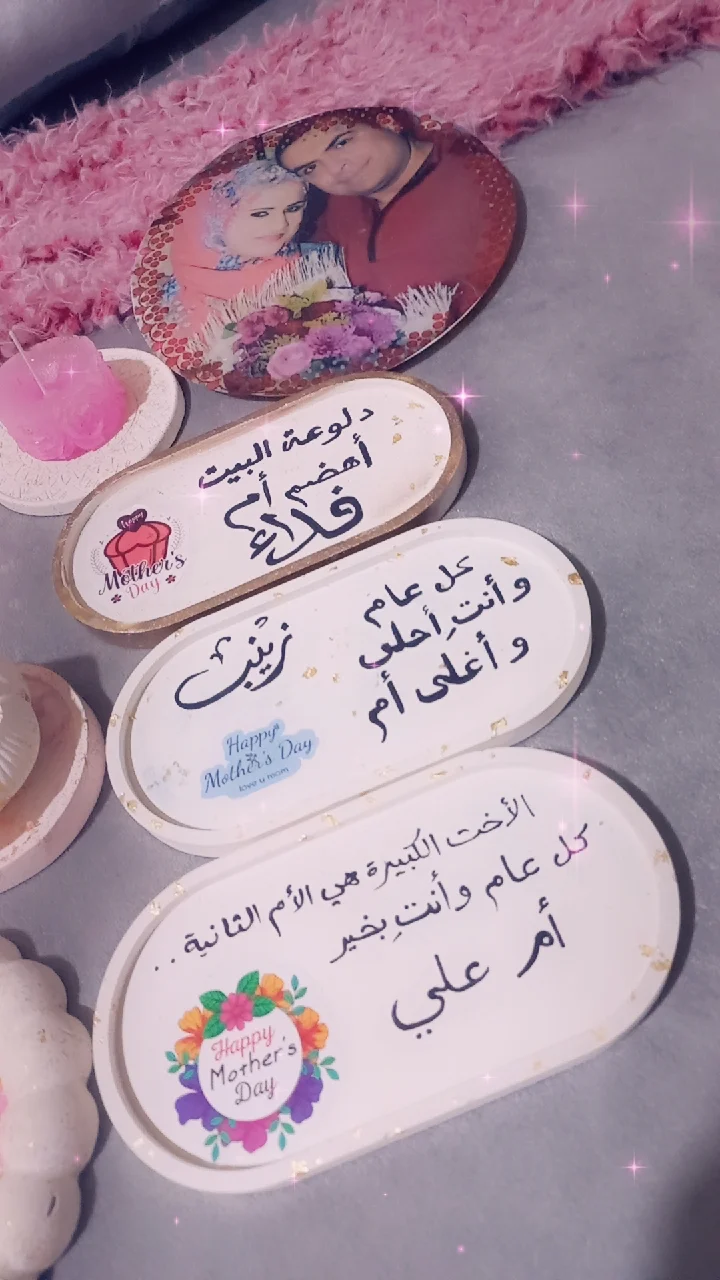 دلوعة البيت
أهضم أم
فداء
Happy
Mother's
Day
كل عام
وأنتِ أحلى
و أغلى أم
زينب
Happy
Mother's Day
love u mom
الأخت الكبيرة هي الأم الثانية..
كل عام وأنتِ بخير
أم علي
Happy
Mother's
Day